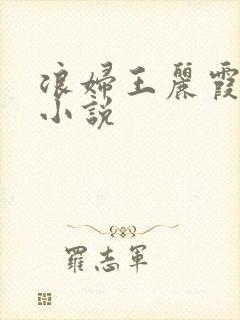 浪婦王麗霞
小說
羅志軍